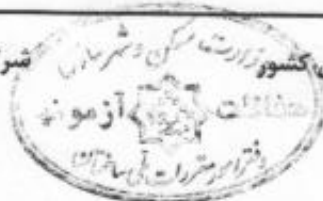 وزارت مسکن و شهرسازی
کشور
شر
آزمون
دفتر امور مقررات ملی ساختمان